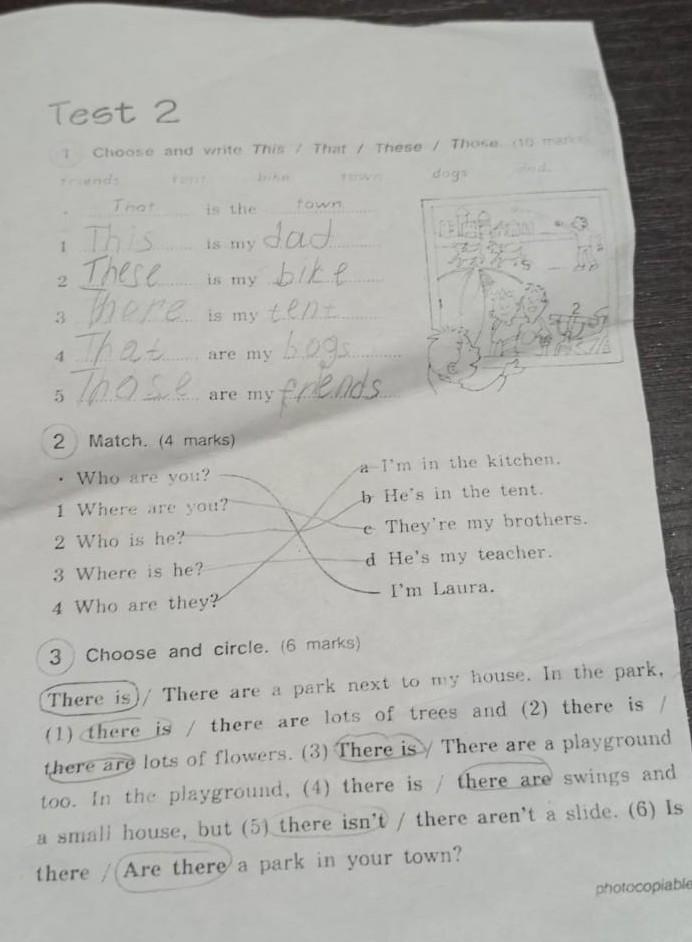 Test 2
1 Choose and write This / That / These / Those. (10 marks)
friends tent bike town dogs dad
. That is the town
1 This is my dad
2 These is my bike
3 There is my tent
4 That are my bogs
5 Those are my friends
2
2 Match. (4 marks)
· Who are you?
1 Where are you?
2 Who is he?
3 Where is he?
4 Who are they?
a I'm in the kitchen.
b He's in the tent.
c They're my brothers.
d He's my teacher.
I'm Laura.
3 Choose and circle. (6 marks)
There is / There are a park next to my house. In the park,
(1) there is / there are lots of trees and (2) there is /
there are lots of flowers. (3) There is / There are a playground
too. In the playground, (4) there is / there are swings and
a small house, but (5) there isn't / there aren't a slide. (6) Is
there / Are there a park in your town?
photocopiable